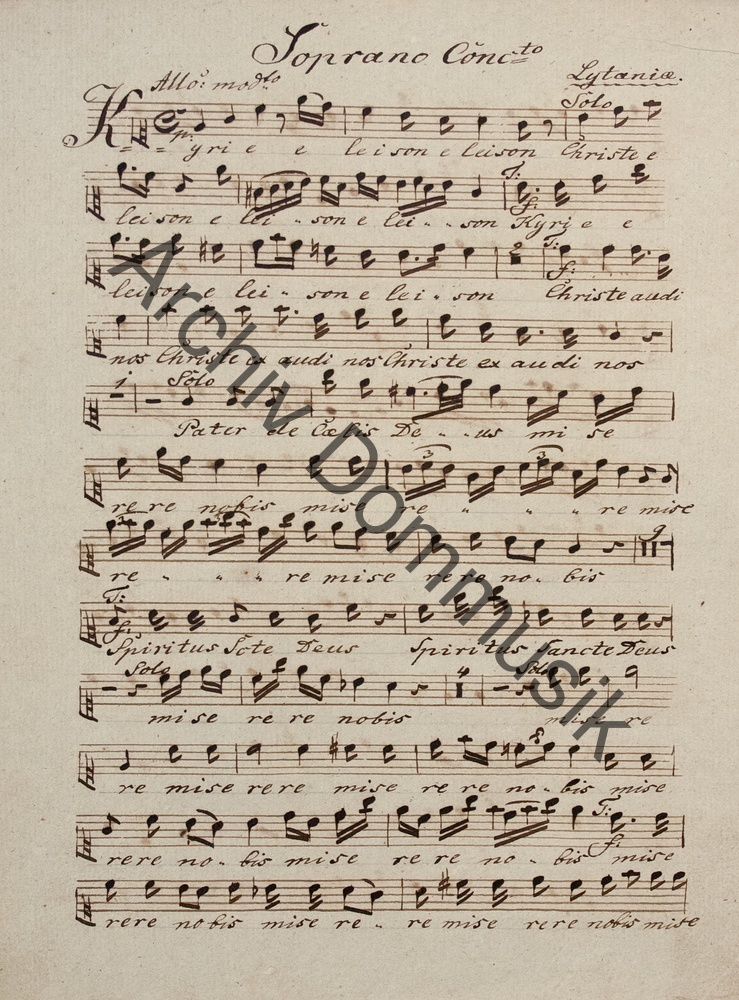 Soprano Conc:to
Lytaniæ.
Allo: modto
Solo
p:
Kyri e e lei son e leison Christe e
T:
f:
lei son e lei " son e lei " " son Kyri e e
2 T:
f:
lei son e lei " son e lei " son Christe audi
nos Christe ex audi nos Christe ex audi nos
1 Solo
Pater de Cœlis De " " us mi se
3 3
re re nobis mise re " " " re mise
9
re " " " re mise re re no " bis
T:
f:
Spiritus Scte Deus Spiritus Sancte Deus
Solo 4 Solo
mi se re re nobis mise re
re mise re re mise re re no " bis mise
T:
f:
re re no " bis mi se re re no " bis mise
re re no bis mise re " re mise re re nobis mise
Archiv Dommusik